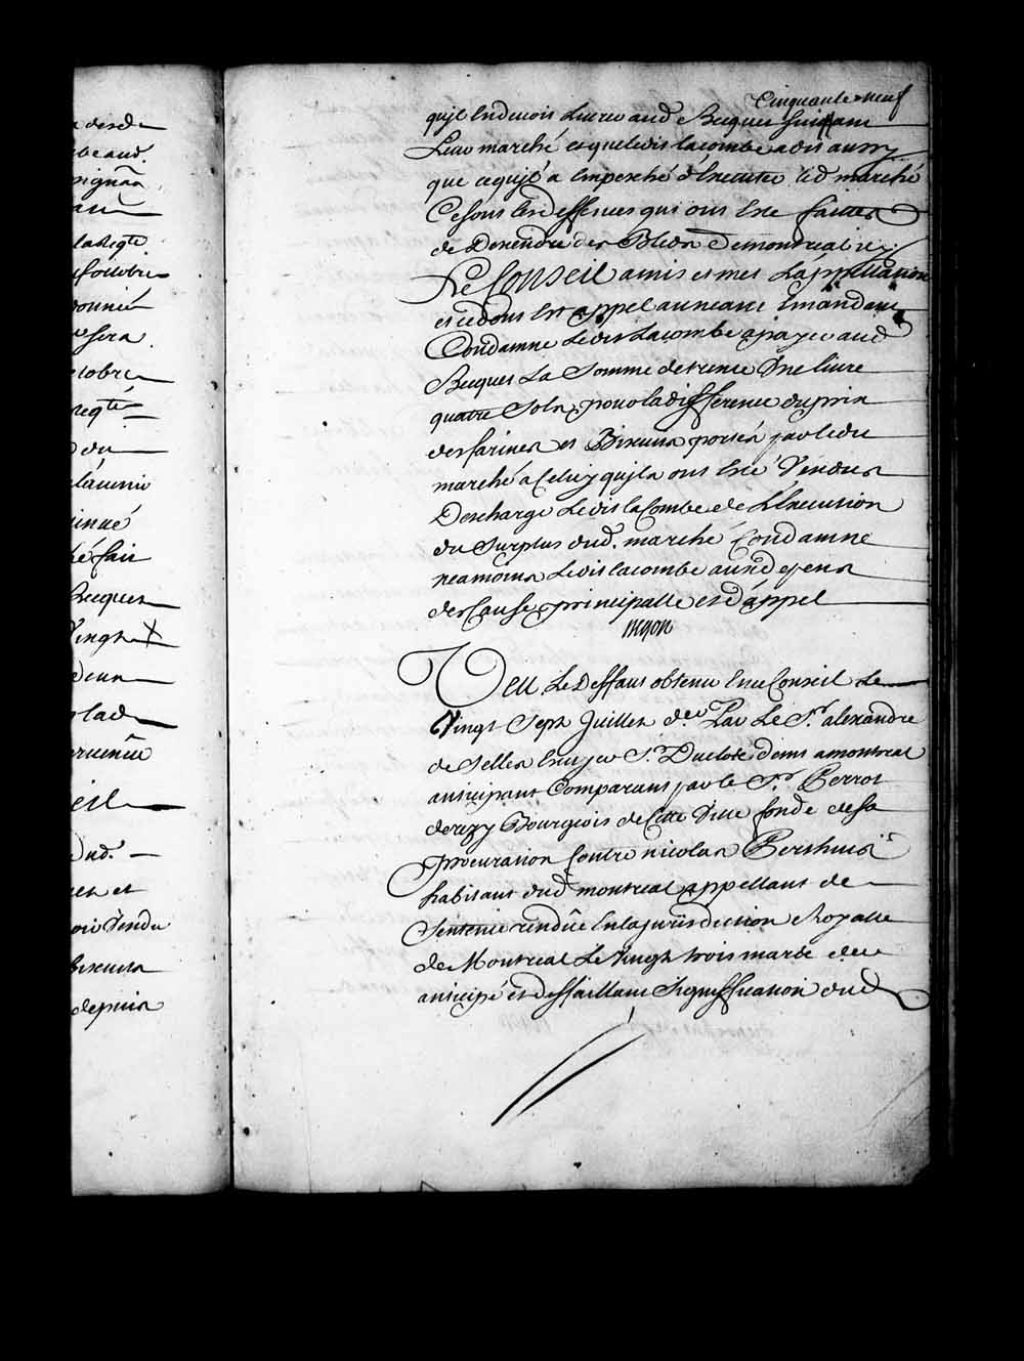 a desd
be aud.
signa
la Reqte
d'octobre
donné
sera
octobre
reqte
du
l'avenir
inué
té fair
Becquet
vingt X
deux
lad
est
Dud.
et
oir Vendu
biscuits
de prix
Cinquante-neuf
qu'il en devois Livrer aud Becquet suivant
Leur marché et que ledit lacombe a dit aussy
que ce qui l'a Empesché d'Executer led marché
Ce sont les deffences qui ont Esté faittes
de Descendre des Bleds De montreal icy
Le Conseil a mis et met L'appellation
et ce dont Est appel au neant Emandant
Condamne Ledit Lacombe a payer aud
Becquet La Somme de trente Une livre
quatre Sols, pour la difference du prix
des farines et Biscuits portés par ledit
marché a Celuy qu'ils ont Esté Vendus
Descharge Ledit la Combe de L'Execution
du Surplus dud. marché Condamne
neamoins Ledit lacombe aux despens
des Causes principalle et d'appel
Begon
Veu Le Deffaut obtenu En ce Conseil Le
Vingt Sept Juillet der Par Le Sr. alexandre
de Selles Escuyer Sr. Duclos demt a montreal
anticipant Comparant par le Sr. Perrot
derizy Bourgeois de Cette Ville fondé de sa
procuration Contre nicolas Perthuis
habitant dud montreal appellant de
Sentence rendüe En la jurisdiction Royalle
de Montreal Le Vingt trois mars der
anticipé et deffaillant Signiffication dud